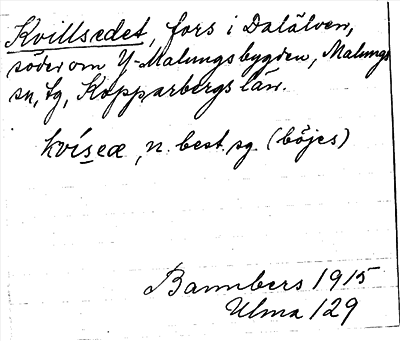 Kvillsedet, fors i Dalälven,
söder om Y-Malungsbygden, Malungs
sn, tg, Kopparbergs län.
kvíseæ, n. best. sg. (böjes)
Bannbers 1915
Ulma 129